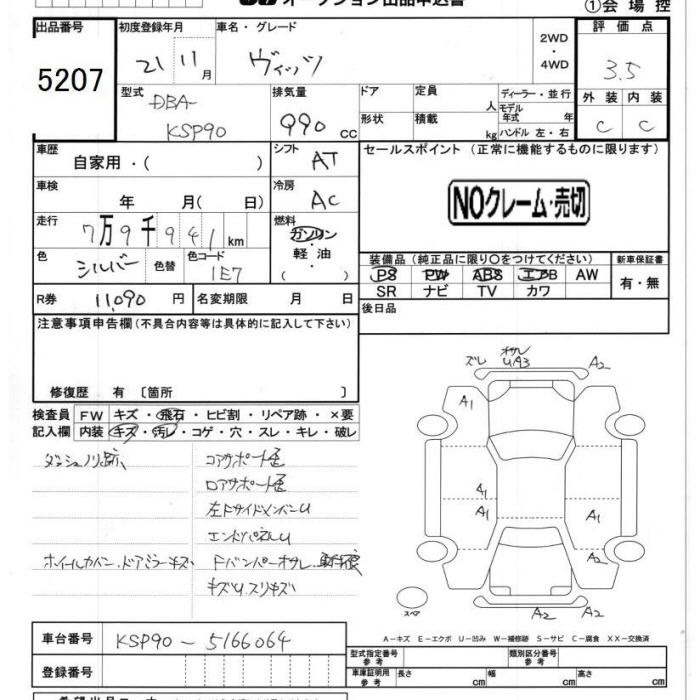 オークション出品申込書
①会場控
出品番号
5207
初度登録年月
21 11月
車名・グレード
ヴィッツ
2WD
・
4WD
評価点
3.5
外装 内装
C C
型式
DBA-
KSP90
排気量
990cc
ドア
形状
定員
人
積載
kg
ディーラー・並行
モデル
年式 年
ハンドル 左・右
車歴
自家用・( )
シフト
AT
セールスポイント (正常に機能するものに限ります)
NOクレーム・売切
車検
年 月( 日)
冷房
AC
走行
7万9千941km
燃料
ガソリン
・
軽油
・
( )
色
シルバー
色替
色コード
1E7
装備品 (純正品に限り〇をつけてください)
PS PW ABS エアB AW
SR ナビ TV カワ
新車保証書
有・無
R券 11,090円
名変期限 月 日
後日品
注意事項申告欄(不具合内容等は具体的に記入して下さい)
修復歴 有 〔箇所 〕
検査員
記入欄
FW キズ・飛石・ヒビ割・リペア跡・×要
内装 キズ・汚レ・コゲ・穴・スレ・キレ・破レ
ダッシュノリ跡
コアサポート歪
ロアサポート歪
左Fサイドメンバーu
エンドパネルu
ホイールカバー、ドアミラーキズ
Fバンパーオサレ、
キズu スリキズ
ズレ
オサレ
UA3
A2
A1
A1
A1
A1
A1
A2
A2
スペア
A-キズ E-エクボ U-凹み W-補修跡 S-サビ C-腐食 XX-交換済
車台番号 KSP90-5166064
登録番号
型式指定番号
参考
類別区分番号
参考
車庫証明用
参考
長さ cm
幅 cm
高さ cm